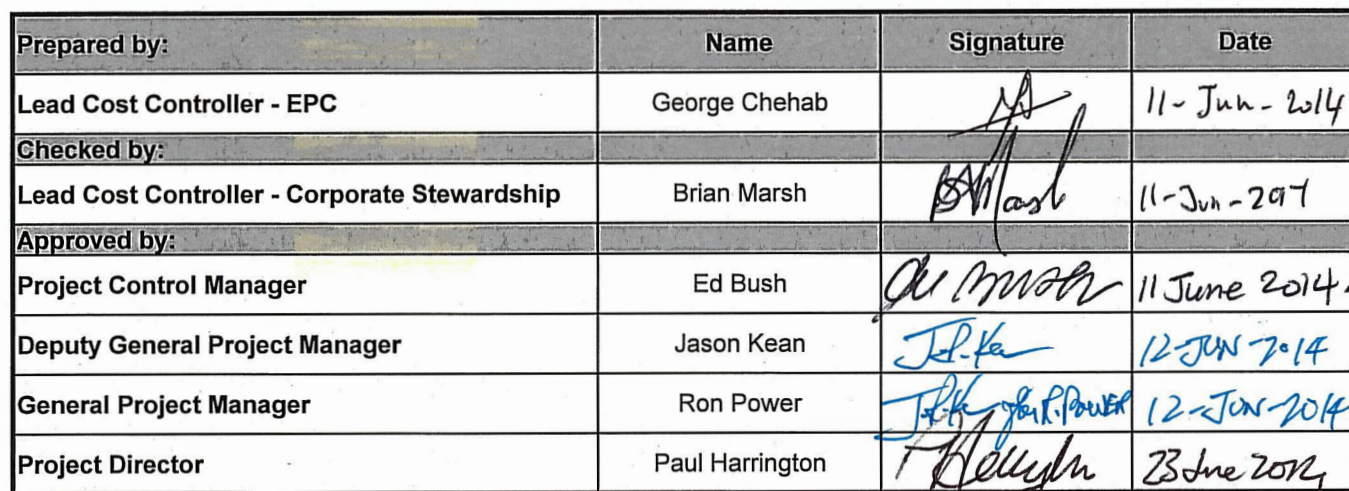 Prepared by: Name Signature Date
Lead Cost Controller - EPC George Chehab 11-Jun-2014
Checked by:
Lead Cost Controller - Corporate Stewardship Brian Marsh BMarsh 11-Jun-2014
Approved by:
Project Control Manager Ed Bush Ed Bush 11 June 2014
Deputy General Project Manager Jason Kean 12-JUN-2014
General Project Manager Ron Power for R. POWER 12-JUN-2014
Project Director Paul Harrington 23 June 2014